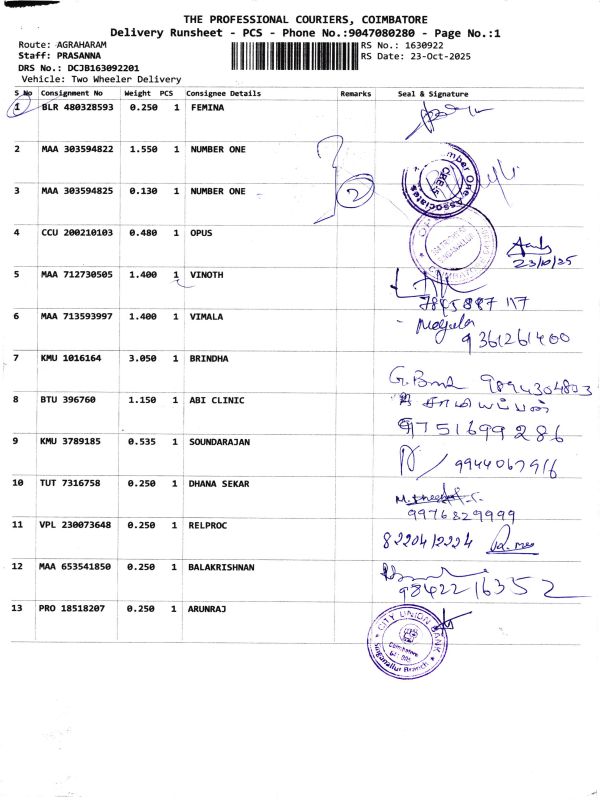 THE PROFESSIONAL COURIERS, COIMBATORE
Delivery Runsheet - PCS - Phone No.:9047080280 - Page No.:1
Route: AGRAHARAM
RS No.: 1630922
Staff: PRASANNA
RS Date: 23-Oct-2025
DRS No.: DCJB163092201
Vehicle: Two Wheeler Delivery
S No Consignment No Weight PCS Consignee Details Remarks Seal & Signature
1 BLR 480328593 0.250 1 FEMINA
2 MAA 303594822 1.550 1 NUMBER ONE
Number One Associates
3 MAA 303594825 0.130 1 NUMBER ONE
2
4 CCU 200210103 0.480 1 OPUS
23/10/25
5 MAA 712730505 1.400 1 VINOTH
7845887117
6 MAA 713593997 1.400 1 VIMALA
9361261400
7 KMU 1016164 3.050 1 BRINDHA
9894304803
8 BTU 396760 1.150 1 ABI CLINIC
9751699286
9 KMU 3789185 0.535 1 SOUNDARAJAN
9944067916
10 TUT 7316758 0.250 1 DHANA SEKAR
9976829999
11 VPL 230073648 0.250 1 RELPROC
8220412224
12 MAA 653541850 0.250 1 BALAKRISHNAN
9842216352
13 PRO 18518207 0.250 1 ARUNRAJ
CITY UNION BANK
Coimbatore
Singanallur Branch